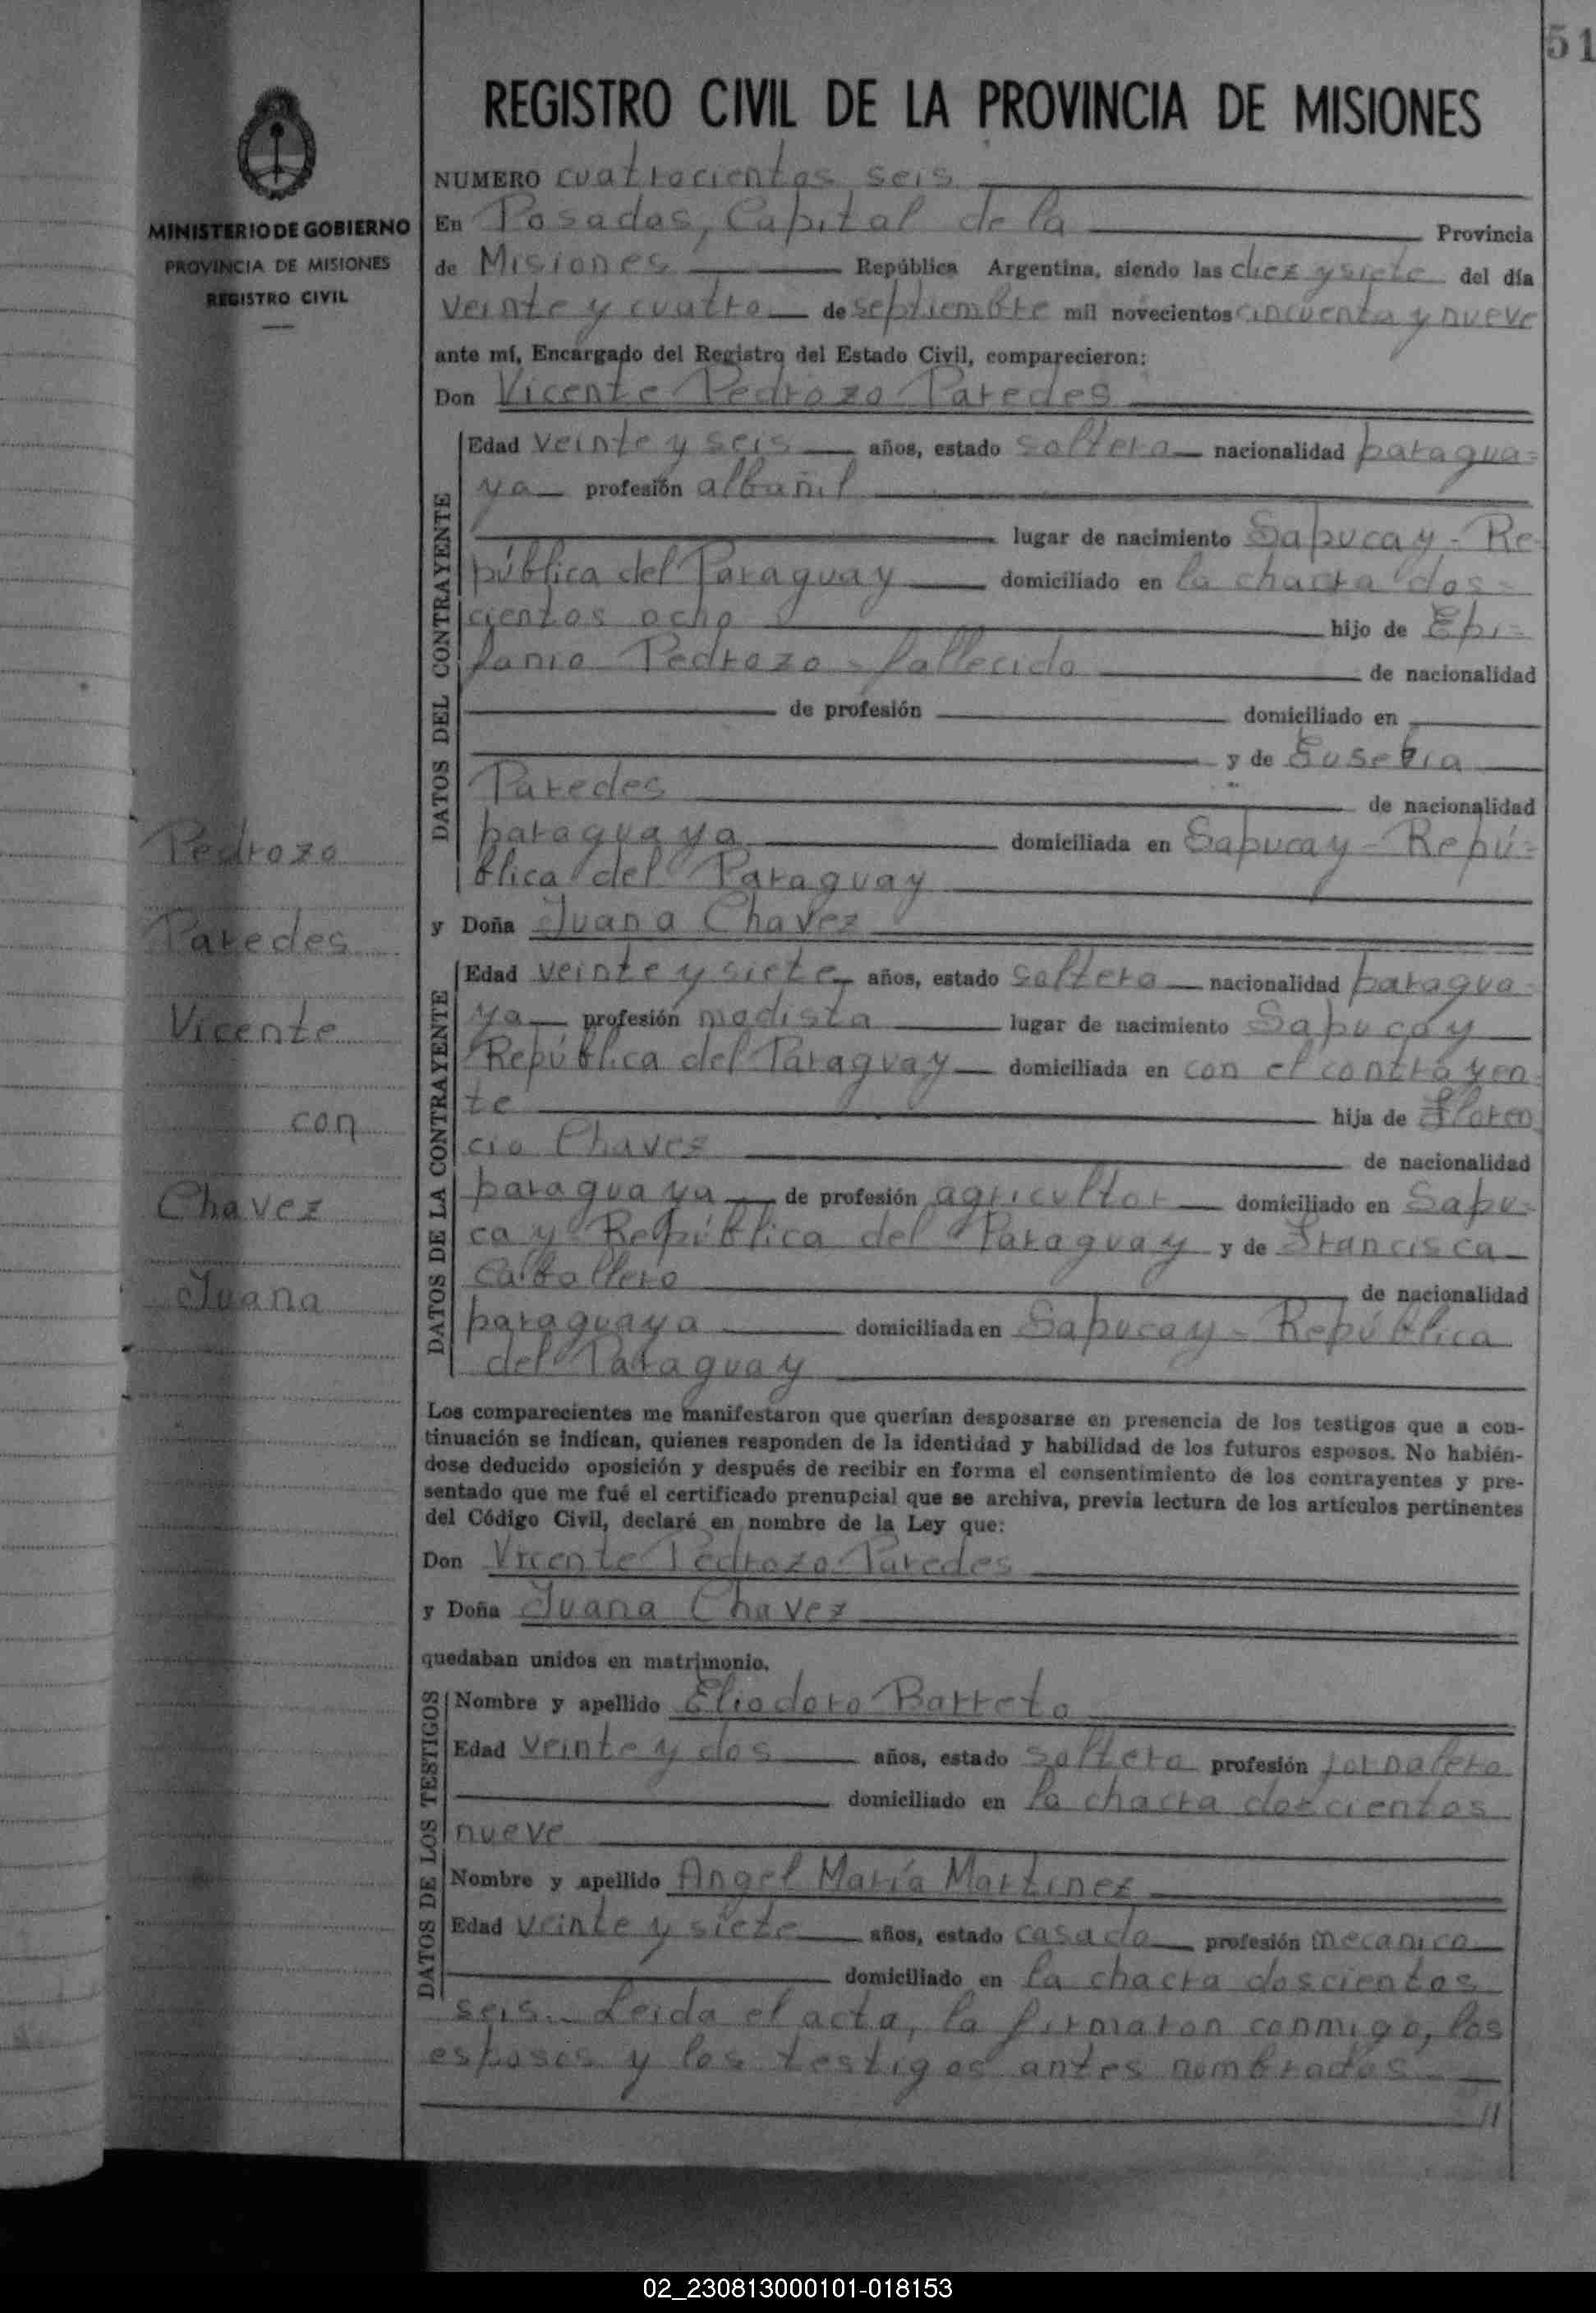 51
REGISTRO CIVIL DE LA PROVINCIA DE MISIONES
MINISTERIO DE GOBIERNO
PROVINCIA DE MISIONES
REGISTRO CIVIL
NUMERO cuatrocientos seis
En Posadas, Capital de la Provincia
de Misiones República Argentina, siendo las diez y siete del día
veinte y cuatro de septiembre mil novecientos cincuenta y nueve
ante mí, Encargado del Registro del Estado Civil, comparecieron:
Don Vicente Pedrozo Paredes
DATOS DEL CONTRAYENTE
Edad veinte y seis años, estado soltero nacionalidad paragua=
ya profesión albañil
lugar de nacimiento Sapucay - Re-
pública del Paraguay domiciliado en la chacra dos=
cientos ocho hijo de Epi=
fanio Pedrozo - fallecido de nacionalidad
de profesión domiciliado en
y de Eusebia
Paredes de nacionalidad
paraguaya domiciliada en Sapucay - Repú=
blica del Paraguay
y Doña Juana Chavez
DATOS DE LA CONTRAYENTE
Edad veinte y siete años, estado soltera nacionalidad paragua-
ya profesión modista lugar de nacimiento Sapucay
República del Paraguay domiciliada en con el contrayen-
te hija de Floren
cio Chavez de nacionalidad
paraguaya de profesión agricultor domiciliado en Sapu-
cay República del Paraguay y de Francisca
Caballero de nacionalidad
paraguaya domiciliada en Sapucay - República
del Paraguay
Pedrozo
Paredes
Vicente
con
Chavez
Juana
Los comparecientes me manifestaron que querían desposarse en presencia de los testigos que a con-
tinuación se indican, quienes responden de la identidad y habilidad de los futuros esposos. No habién-
dose deducido oposición y después de recibir en forma el consentimiento de los contrayentes y pre-
sentado que me fué el certificado prenupcial que se archiva, previa lectura de los artículos pertinentes
del Código Civil, declaré en nombre de la Ley que:
Don Vicente Pedrozo Paredes
y Doña Juana Chavez
quedaban unidos en matrimonio.
DATOS DE LOS TESTIGOS
Nombre y apellido Eliodoro Barreto
Edad veinte y dos años, estado soltero profesión jornalero
domiciliado en la chacra doscientos
nueve
Nombre y apellido Angel María Martinez
Edad veinte y siete años, estado casado profesión mecanico
domiciliado en la chacra doscientos
seis.- Leida el acta, la firmaron conmigo, los
esposos y los testigos antes nombrados.-
//
02_230813000101-018153